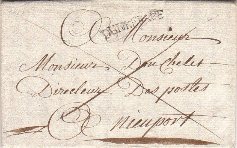 A Monsieur
Monsieur Douchelet
Directeur Des postes
A nieuport